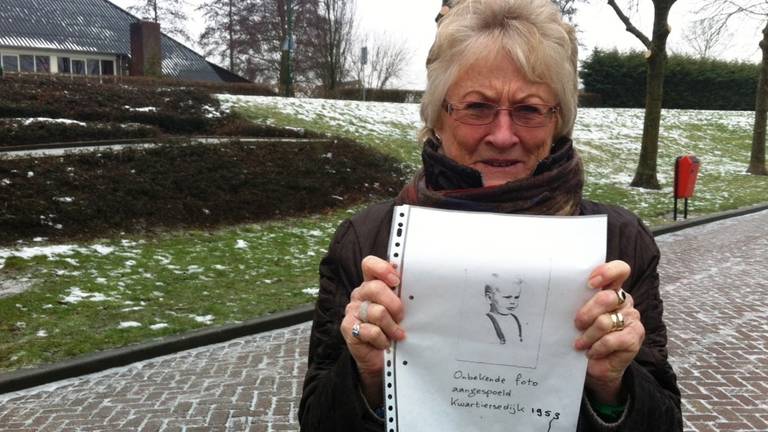 Onbekende foto
aangespoeld
Kwartiersedijk 1953